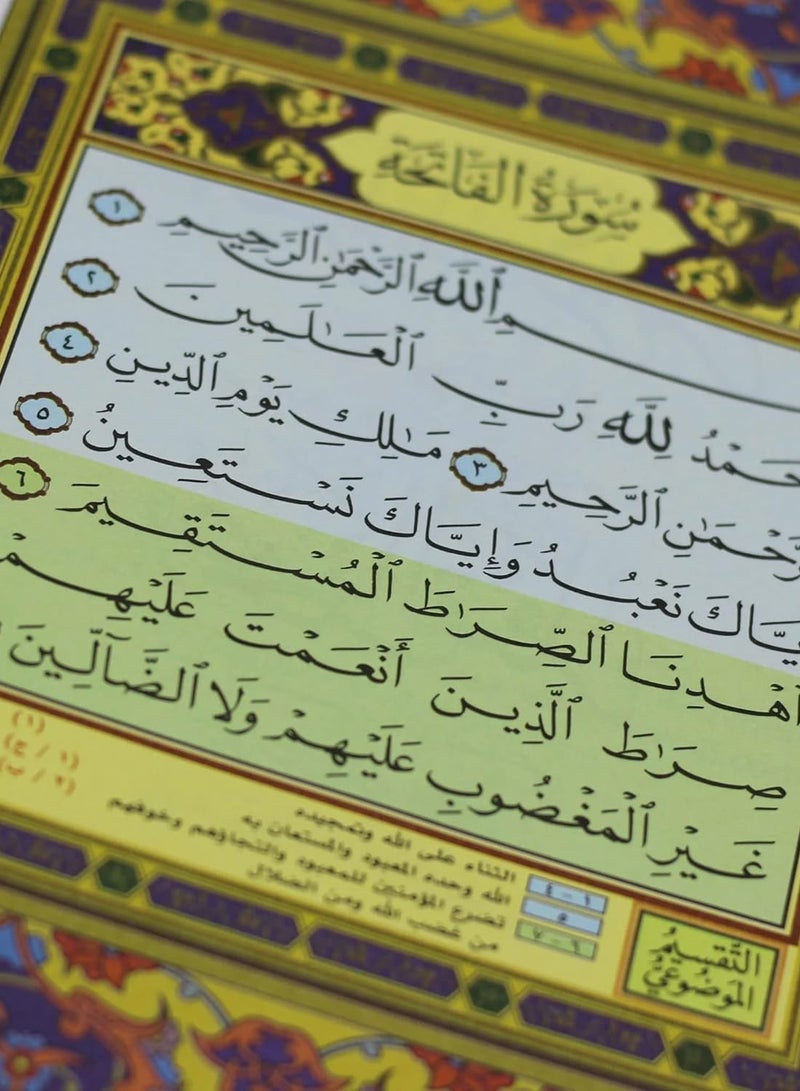 سُورَةُ الفَاتِحَةِ
ـسْمِ ٱللَّهِ ٱلرَّحْمَٰنِ ٱلرَّحِيمِ ١
ـحَمْدُ لِلَّهِ رَبِّ ٱلْعَٰلَمِينَ ٢
ـرَّحْمَٰنِ ٱلرَّحِيمِ ٣ مَٰلِكِ يَوْمِ ٱلدِّينِ ٤
يَّاكَ نَعْبُدُ وَإِيَّاكَ نَسْتَعِينُ ٥
ٱهْدِنَا ٱلصِّرَٰطَ ٱلْمُسْتَقِيمَ ٦
صِرَٰطَ ٱلَّذِينَ أَنْعَمْتَ عَلَيْهِمْ
غَيْرِ ٱلْمَغْضُوبِ عَلَيْهِمْ وَلَا ٱلضَّآلِّينَ
التَّقسِيمُ
المَوضُوعِيُّ
١-٤ الثناء على الله وتمجيده (١)
٥ الله وحده المعبود والمستعان به (١ / ج)
٦-٧ تضرع المؤمنين للمعبود والتجاؤهم وخوفهم (٢ / ب)
من غضب الله ومن الضلال